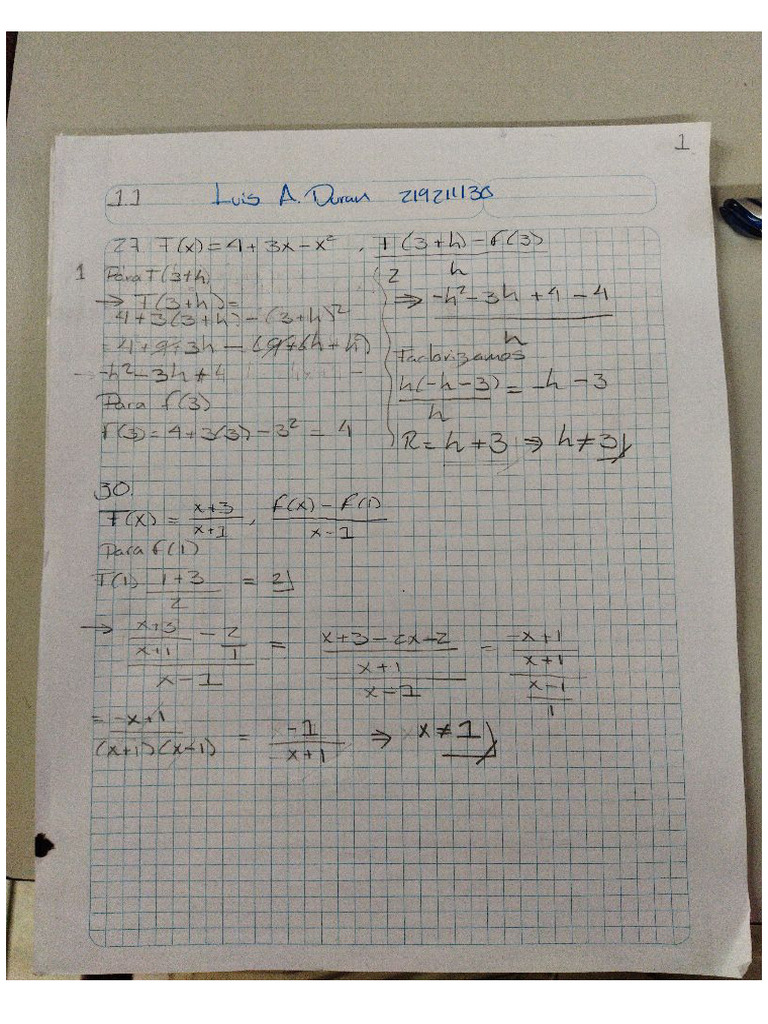 1
1.1 Luis A. Duran 219211130
27 f(x) = 4 + 3x - x², f(3+h) - f(3)
h
1 Para f(3+h)
→ f(3+h) =
4 + 3(3+h) - (3+h)²
= 4 + 9 + 3h - (9 + 6h + h²)
→ -h² - 3h + 4
Para f(3)
f(3) = 4 + 3(3) - 3² = 4
2
⇒ -h² - 3h + 4 - 4
h
Factorizamos
h(-h-3) = -h - 3
h
R = h + 3 ⇒ h ≠ 3
30.
f(x) = x+3 / x+1, f(x) - f(1) / x-1
Para f(1)
f(1) 1+3 / 2 = 2
→ x+3 / x+1 - 2 / 1 = x+3-2x-2 / x+1 = -x+1 / x+1
x-1 x-1 x-1 / 1
= -x+1 / (x+1)(x-1) = -1 / x+1 ⇒ x ≠ 1